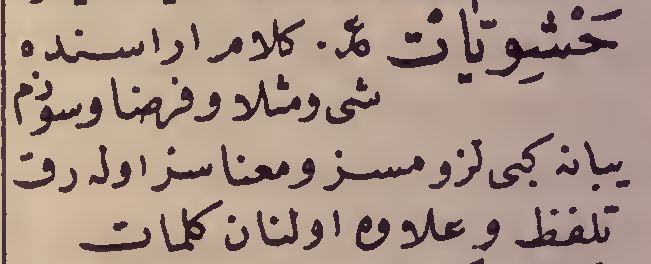 حَشْوِيّات مد. كلام اراسنده
شی ومثلا وفرضا وسوزم
يبانه كبی لزومسز ومعناسز اوله رق
تلفظ و علاوه اولنان كلمات